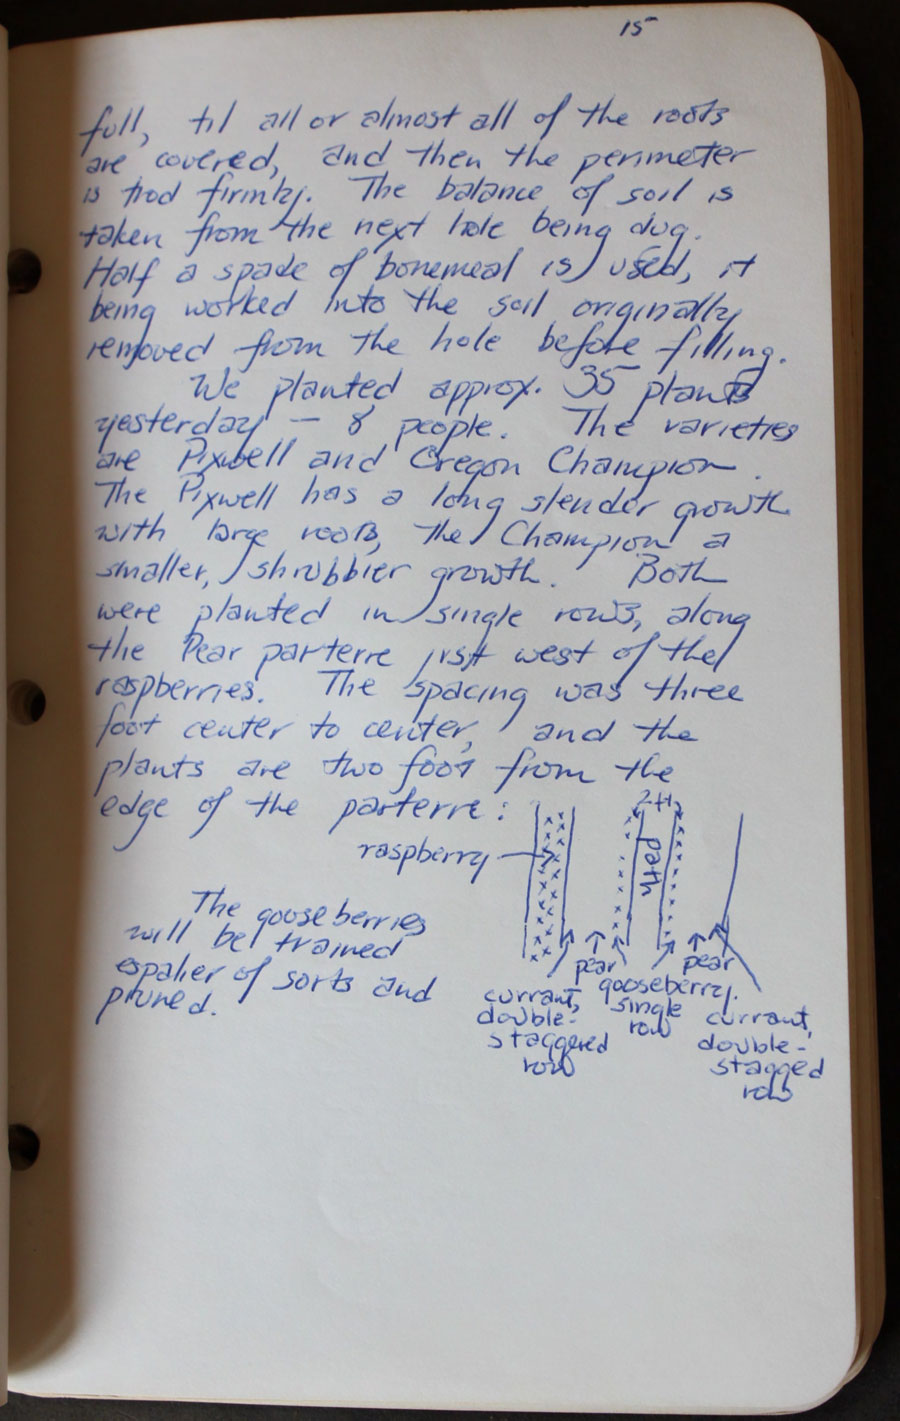 15
full, til all or almost all of the roots
are covered, and then the perimeter
is trod firmly. The balance of soil is
taken from the next hole being dug.
Half a spade of bonemeal is used, it
being worked into the soil originally
removed from the hole before filling.
We planted approx. 35 plants
yesterday — 8 people. The varieties
are Pixwell and Oregon Champion.
The Pixwell has a long slender growth
with large roots, the Champion a
smaller, shrubbier growth. Both
were planted in single rows, along
the Pear parterre just west of the
raspberries. The spacing was three
foot center to center, and the
plants are two foot from the
edge of the parterre:
2ft
path
raspberry
The gooseberries
will be trained
espalier of sorts and
pruned.
pear
pear
gooseberry.
single
row
currant,
double-
staggered
row
currant,
double-
stagged
row